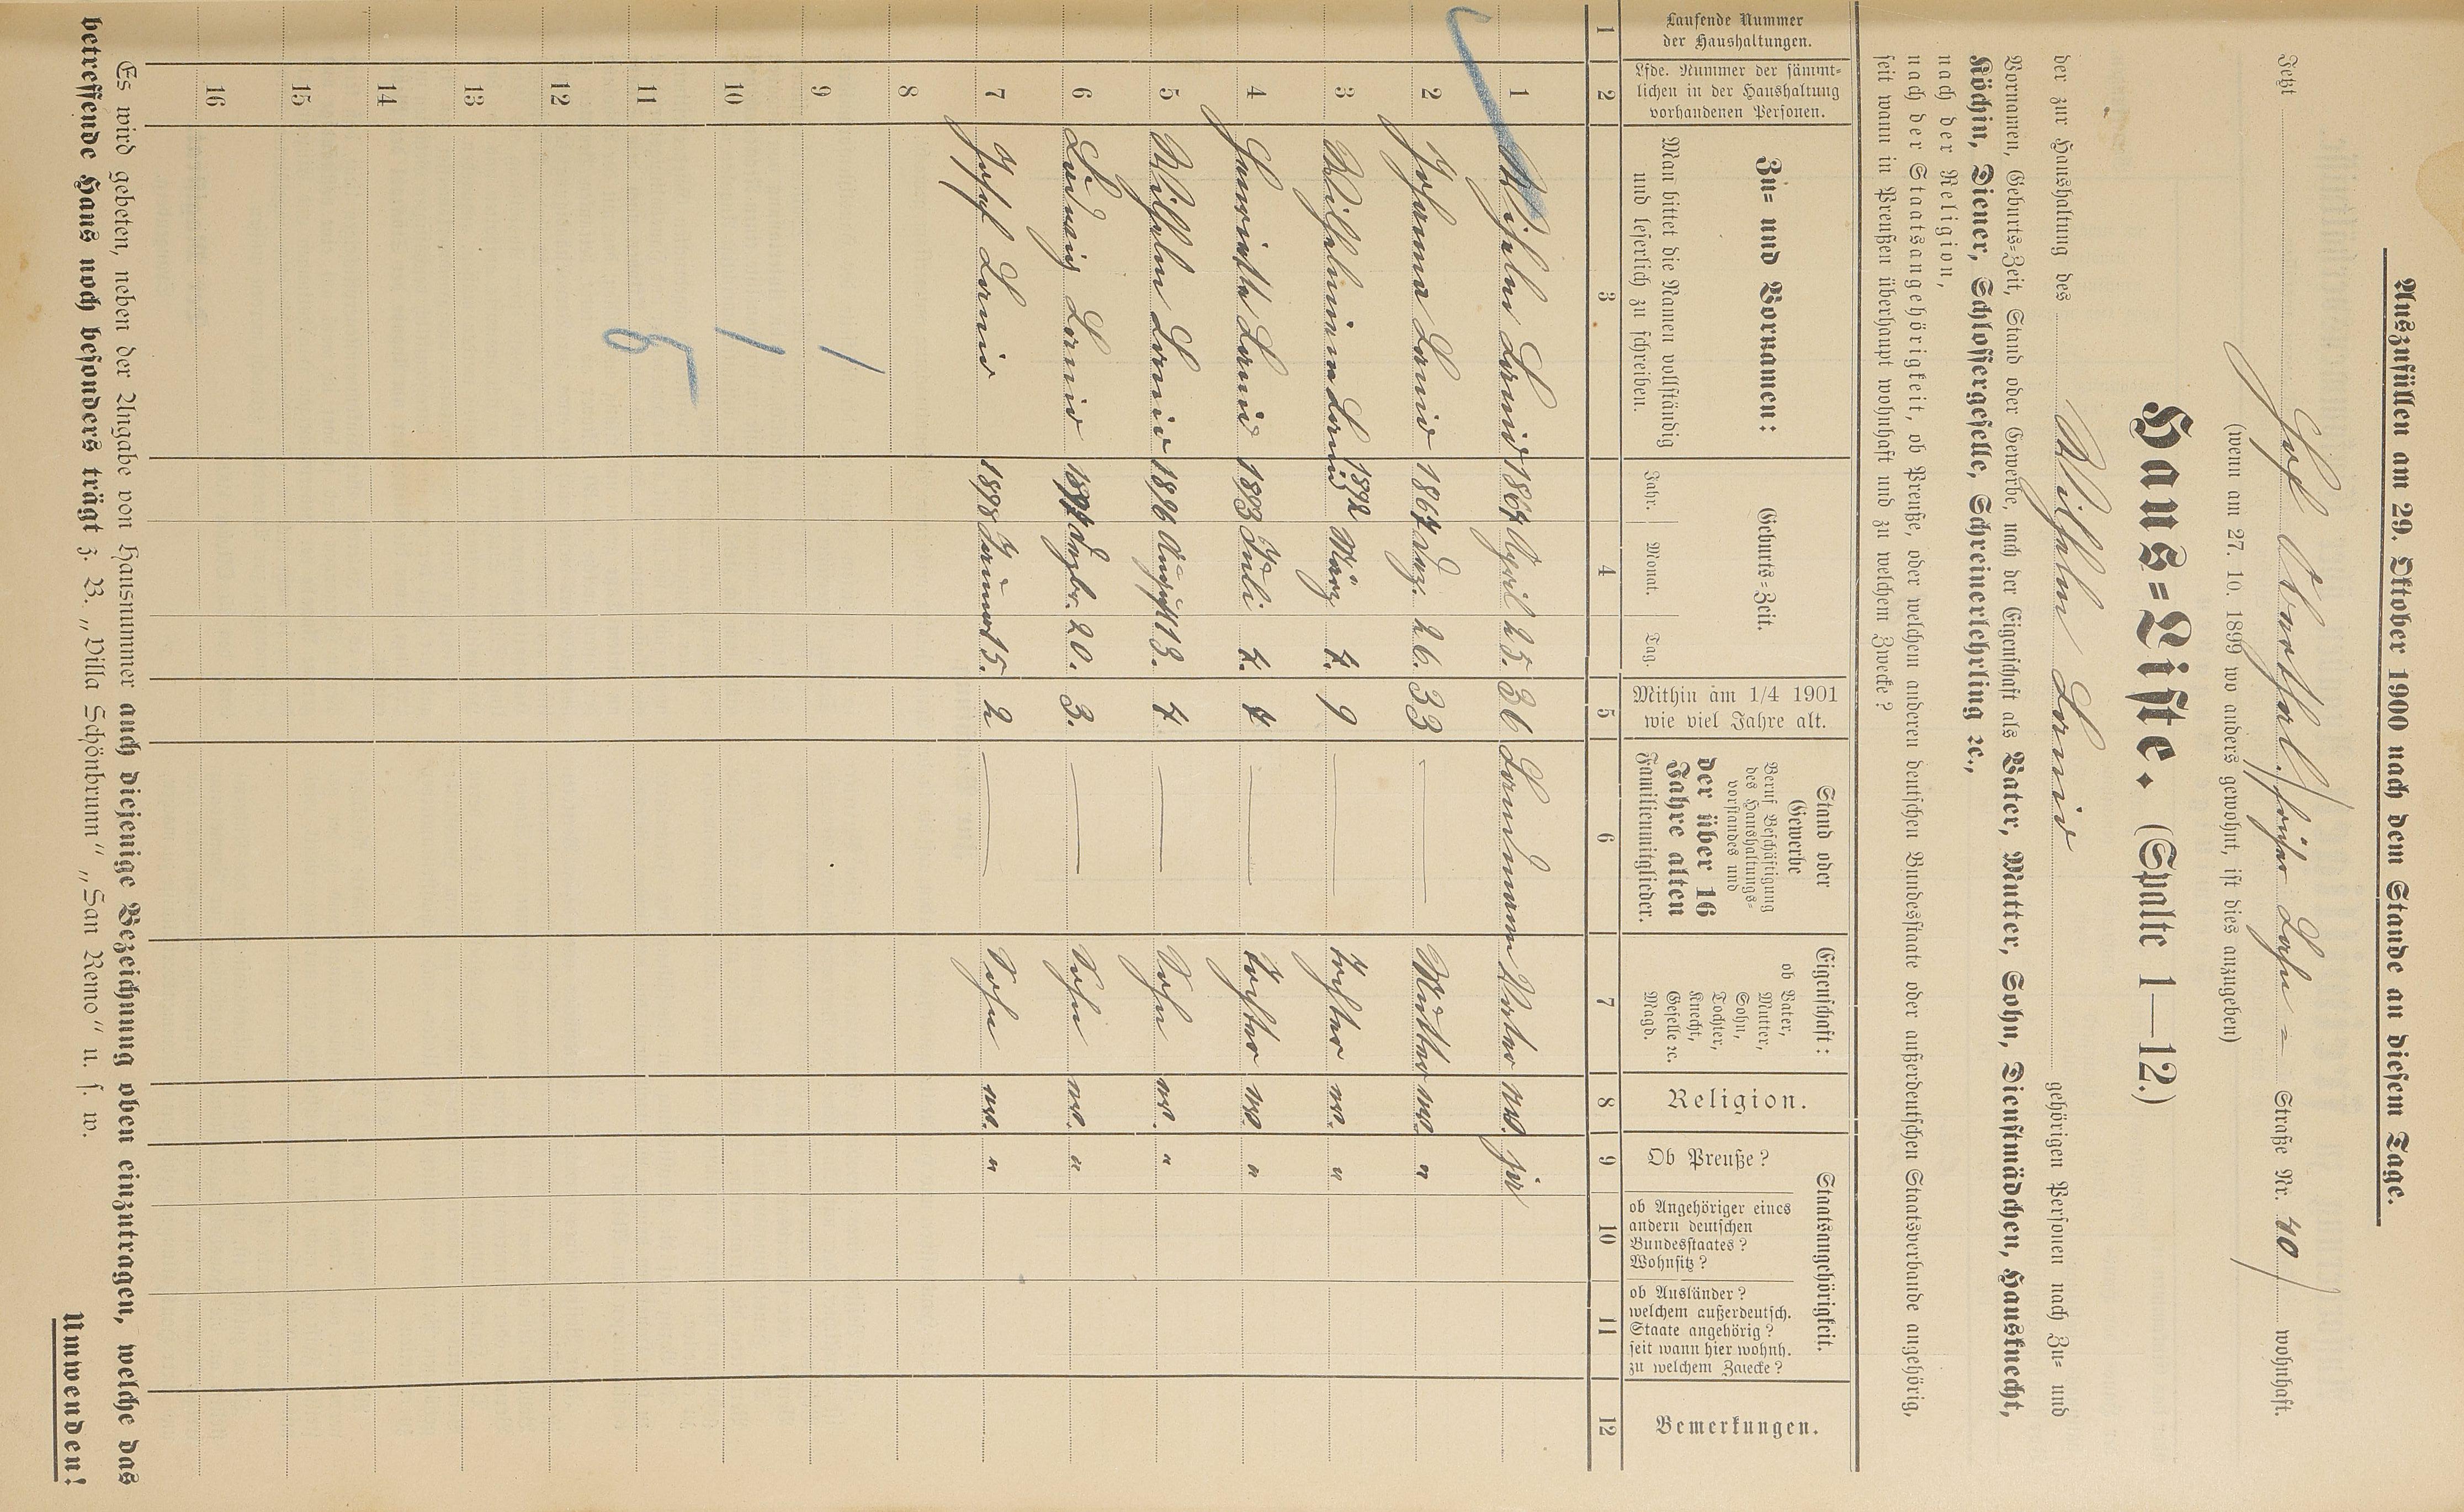 Auszufüllen am 29. Oktober 1900 nach dem Stande an diesem Tage.
Jetzt Hof Straße Nr. 40 wohnhaft.
(wenn am 27. 10. 1899 wo anders gewohnt, ist dies anzugeben)
Haus=Liste. (Spalte 1—12.)
der zur Haushaltung des Wilhelm gehörigen Personen nach Zu= und
Vornamen, Geburts=Zeit, Stand oder Gewerbe, nach der Eigenschaft als Vater, Mutter, Sohn, Dienstmädchen, Hausknecht,
Köchin, Diener, Schlossergeselle, Schreinerlehrling ꝛc.,
nach der Religion,
nach der Staatsangehörigkeit, ob Preuße, oder welchem anderen deutschen Bundesstaate oder außerdeutschen Staatsverbande angehörig,
seit wann in Preußen überhaupt wohnhaft und zu welchem Zwecke?
Laufende Nummer
der Haushaltungen.
Lfde. Nummer der sämmt=
lichen in der Haushaltung
vorhandenen Personen.
Zu= und Vornamen:
Man bittet die Namen vollständig
und leserlich zu schreiben.
Geburts=Zeit.
Jahr. Monat. Tag.
Mithin am 1/4 1901
wie viel Jahre alt.
Stand oder
Gewerbe
Beruf Beschäftigung
des Haushaltungs=
vorstandes und
der über 16
Jahre alten
Familienmitglieder.
Eigenschaft:
ob Vater,
Mutter,
Sohn,
Tochter,
Knecht,
Geselle ꝛc.
Magd.
Religion.
Staatsangehörigkeit.
Ob Preuße?
ob Angehöriger eines
andern deutschen
Bundesstaates?
Wohnsitz?
ob Ausländer?
welchem außerdeutsch.
Staate angehörig?
seit wann hier wohnh.
zu welchem Zwecke?
Bemerkungen.
1 2 3 4 5 6 7 8 9 10 11 12
1 Wilhelm 1864 April 25. 36 Landmann Vater ev. ja
2 Johanna 1867 Dez. 26. 33 Mutter ev. "
3 Wilhelmine 1892 März 7. 9 Tochter ev. "
4 Henriette 1893 Juli 7. 7 Tochter ev. "
5 Wilhelm 1896 August 13. Sohn ev. "
6 Ludwig 1897 Dezbr. 20. 3. Sohn ev. "
7 Josef 1898 Januar 15. 2 Sohn ev. "
8
9
10
11
12
13
14
15
16
Es wird gebeten, neben der Angabe von Hausnummer auch diejenige Bezeichnung oben einzutragen, welche das
betreffende Haus noch besonders trägt z. B. „Villa Schönbrunn" „San Remo" u. s. w.
Umwenden!